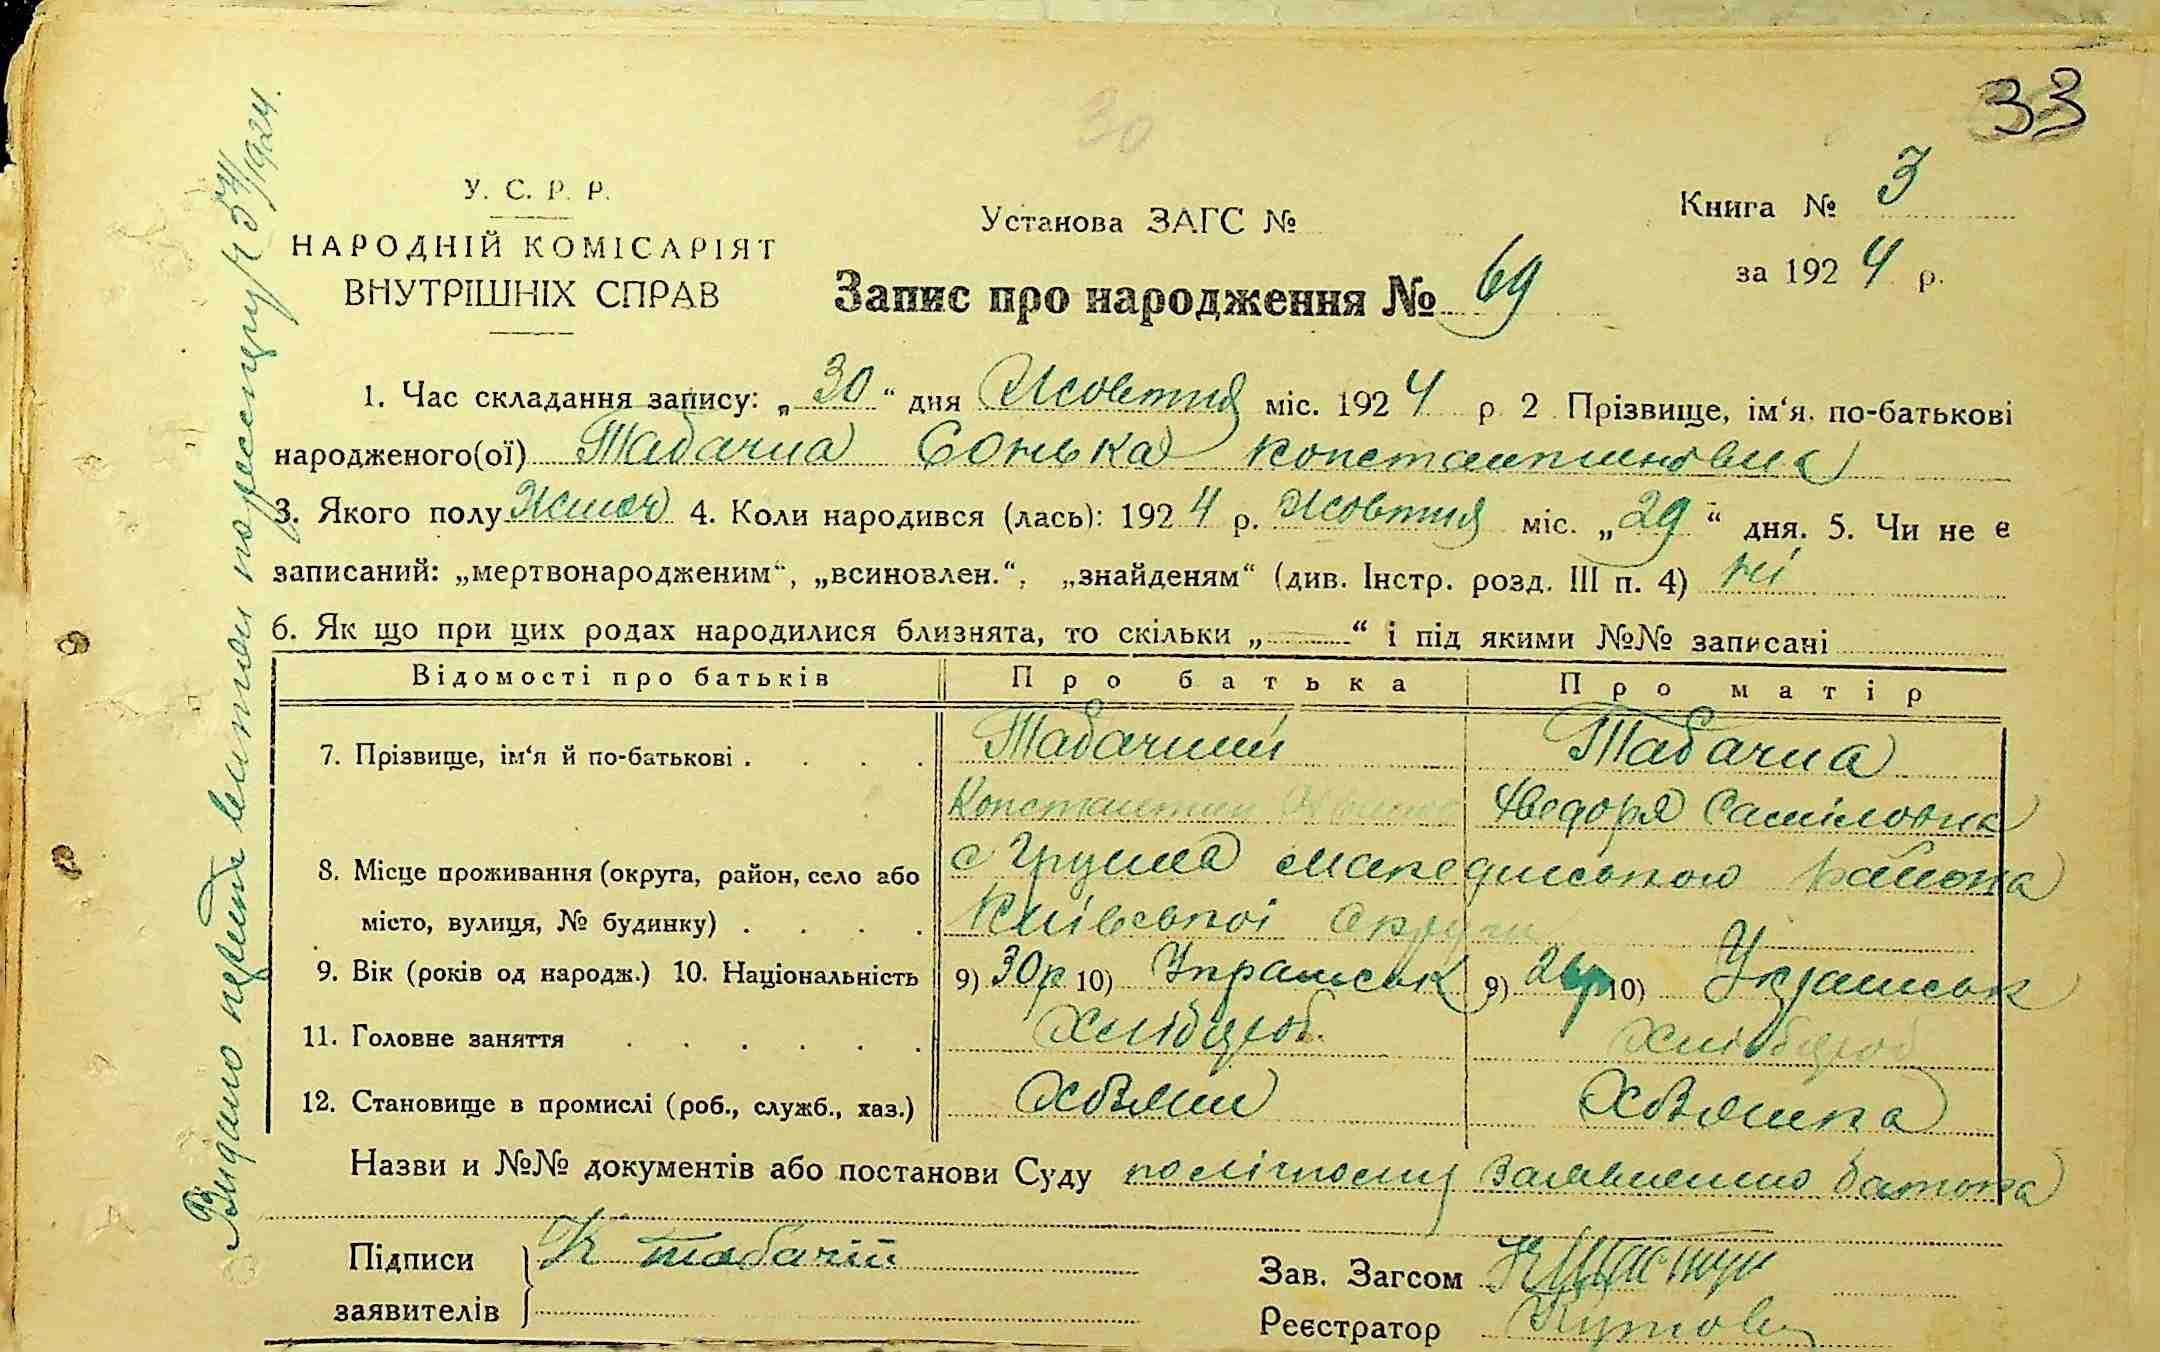 33
30
У. С. Р. Р.
НАРОДНІЙ КОМІСАРІЯТ
ВНУТРІШНІХ СПРАВ
Установа ЗАГС №
Книга № 3
за 1924 р.
Запис про народження № 69
1. Час складання запису: „30“ дня Жовтня міс. 1924 р 2 Прізвище, ім‘я, по-батькові
народженого(ої) Табачна Сонька Константиновна
3. Якого полу Жиноч 4. Коли народився (лась): 1924 р. Жовтня міс. „29“ дня. 5. Чи не є
записаний: „мертвонародженим“, „всиновлен.“, „знайденям“ (див. Інстр. розд. III п. 4) ні
6. Як що при цих родах народилися близнята, то скільки „—“ і під якими №№ записані
Відомості про батьків Про батька Про матір
7. Прізвище, ім‘я й по-батькові . . . . Табачний Табачна
Константин Хведоря Саміловна
8. Місце проживання (округа, район, село або с Грузька Македонського району
місто, вулиця, № будинку) . . . . Київської округи
9. Вік (років од народж.) 10. Національність 9) 30р 10) Украинськ 9) 10) Украинськ
11. Головне заняття . . . . . . Хлібороб. Хлібороб
12. Становище в промислі (роб., служб., хаз.)
Назви и №№ документів або постанови Суду батька
Підписи К табачній
заявителів
Зав. Загсом
Реєстратор
Видано
1924.